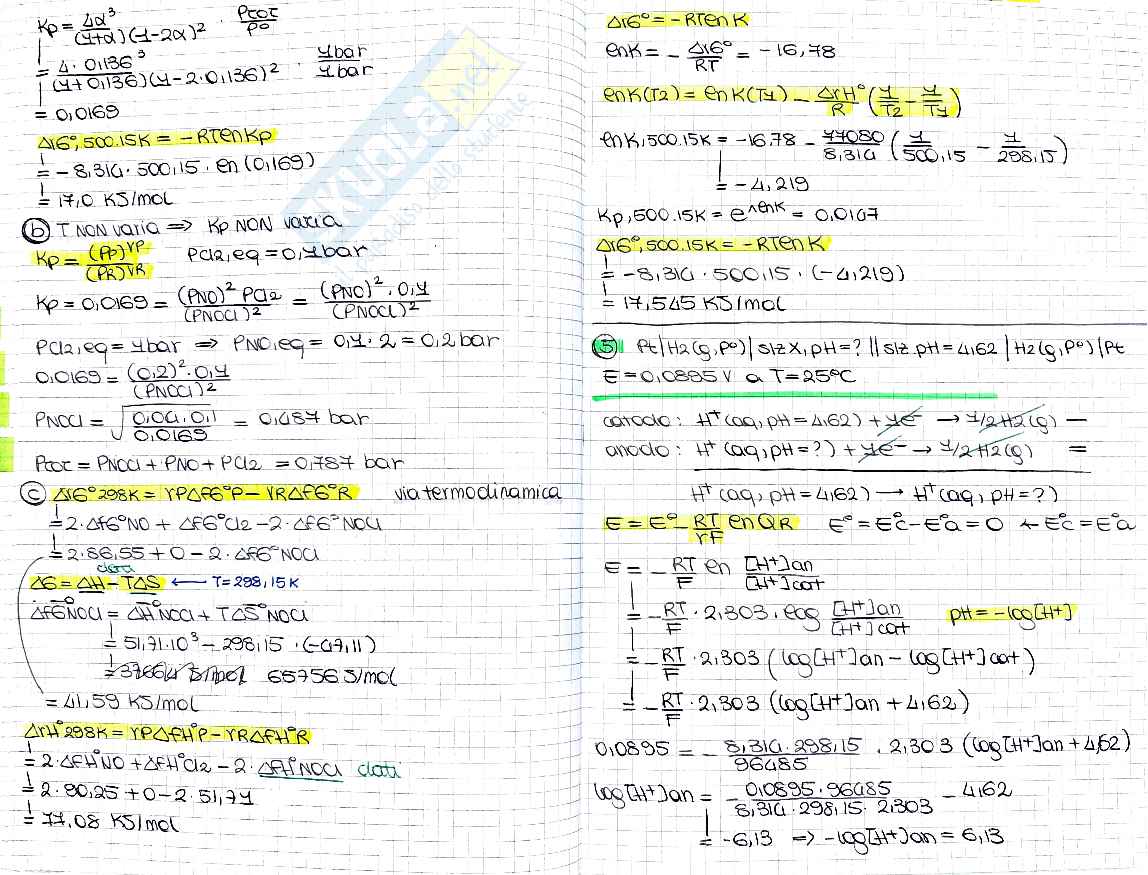 Kp = 4α³/(1+α)(1-2α)² · Ptot/P°
= 4·0,136³/(1+0,136)(1-2·0,136)² · 1bar/1bar
= 0,0169
ΔrG°,500.15K = -RTlnKp
= -8,314·500,15·ln(0,169)
= 17,0 KJ/mol
b) T NON varia ⇒ Kp NON varia
Kp = (PP)^νP/(PR)^νR PCl2,eq = 0,1bar
Kp = 0,0169 = (PNO)² PCl2/(PNOCl)² = (PNO)²·0,1/(PNOCl)²
PCl2,eq = 1bar ⇒ PNO,eq = 0,1·2 = 0,2 bar
0,0169 = (0,2)²·0,1/(PNOCl)²
PNOCl = √(0,04·0,1/0,0169) = 0,487 bar
Ptot = PNOCl + PNO + PCl2 = 0,787 bar
c) ΔrG°298K = νPΔfG°P - νRΔfG°R via termodinamica
= 2·ΔfG°NO + ΔfG°Cl2 - 2·ΔfG°NOCl
= 2·86,55 + 0 - 2·ΔfG°NOCl
dati
ΔG = ΔH - TΔS ← T = 298,15K
ΔfG°NOCl = ΔH°NOCl + TΔS°NOCl
= 51,71·10³ - 298,15·(-47,11)
= 65756 J/mol
= 41,59 KJ/mol
ΔrH°298K = νPΔfH°P - νRΔfH°R
= 2·ΔfH°NO + ΔfH°Cl2 - 2·ΔfH°NOCl dati
= 2·90,25 + 0 - 2·51,71
= 77,08 KJ/mol
ΔrG° = -RTlnK
lnK = -ΔrG°/RT = -16,78
lnK(T2) = lnK(T1) - ΔrH°/R (1/T2 - 1/T1)
lnK,500.15K = -16.78 - 77080/8,314 (1/500,15 - 1/298,15)
= -4,219
Kp,500.15K = e^lnK = 0,0147
ΔrG°,500.15K = -RTlnK
= -8,314·500,15·(-4,219)
= 17,545 KJ/mol
5) Pt|H2(g,P°)|slz X, pH=?||slz pH=4,62|H2(g,P°)|Pt
E = 0,0895 V a T=25°C
catodo: H⁺(aq, pH=4,62) + 1e⁻ → 1/2H2(g) —
anodo: H⁺(aq, pH=?) + 1e⁻ → 1/2H2(g) =
H⁺(aq, pH=4,62) → H⁺(aq, pH=?)
E = E° - RT/νF lnQR E° = E°c - E°a = 0 ← E°c = E°a
E = -RT/F ln [H⁺]an/[H⁺]cat
= -RT/F · 2,303 · log [H⁺]an/[H⁺]cat pH = -log[H⁺]
= -RT/F · 2,303 (log[H⁺]an - log[H⁺]cat)
= -RT/F · 2,303 (log[H⁺]an + 4,62)
0,0895 = -8,314·298,15/96485 · 2,303 (log[H⁺]an + 4,62)
log[H⁺]an = -0,0895·96485/8,314·298,15·2,303 - 4,62
= -6,13 ⇒ -log[H⁺]an = 6,13
SKUOLA.net
il paradiso dello studente